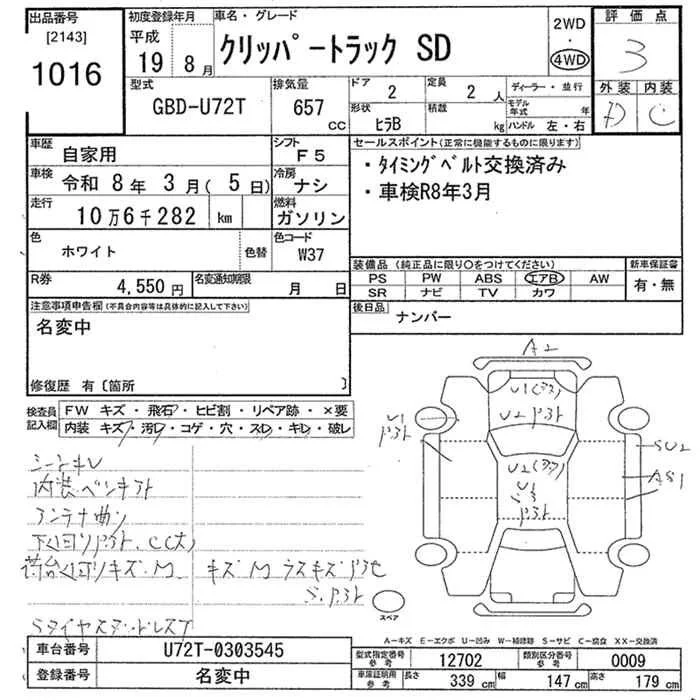 出品番号
[2143]
1016
初度登録年月
平成
19 8月
車名・グレード
クリッパートラック SD
2WD
・
4WD
評価点
3
外装 内装
D C
型式
GBD-U72T
排気量
657
CC
ドア
2
定員
2 人
形状
ヒラB
積載
kg
ディーラー・並行
モデル年式 年
ハンドル 左・右
車歴
自家用
シフト
F5
車検
令和 8年 3月( 5日)
冷房
ナシ
走行
10万6千282 km
燃料
ガソリン
色
ホワイト
色替
色コード
W37
R券
4,550円
名変通知期限
月 日
セールスポイント(正常に機能するものに限ります)
・タイミングベルト交換済み
・車検R8年3月
装備品(純正品に限り○をつけてください)
PS PW ABS エアB AW
SR ナビ TV カワ
新車保証書
有・無
後日品
ナンバー
注意事項申告欄(不具合内容等は具体的に記入して下さい)
名変中
修復歴 有〔箇所 〕
検査員記入欄
FW キズ・飛石・ヒビ割・リペア跡・×要
内装 キズ・汚レ・コゲ・穴・スレ・キレ・破レ
A2
U1
U2
U2
U1
U1
SU2
AS1
内装ペンキフト
アンテナ曲リ
荷台
キズM
スペア
A-キズ E-エクボ U-凹み W-補修跡 S-サビ C-腐食 XX-交換済
車台番号
U72T-0303545
登録番号
名変中
型式指定番号
参考
12702
類別区分番号
参考
0009
車庫証明用
参考
長さ 339 cm
幅 147 cm
高さ 179 cm